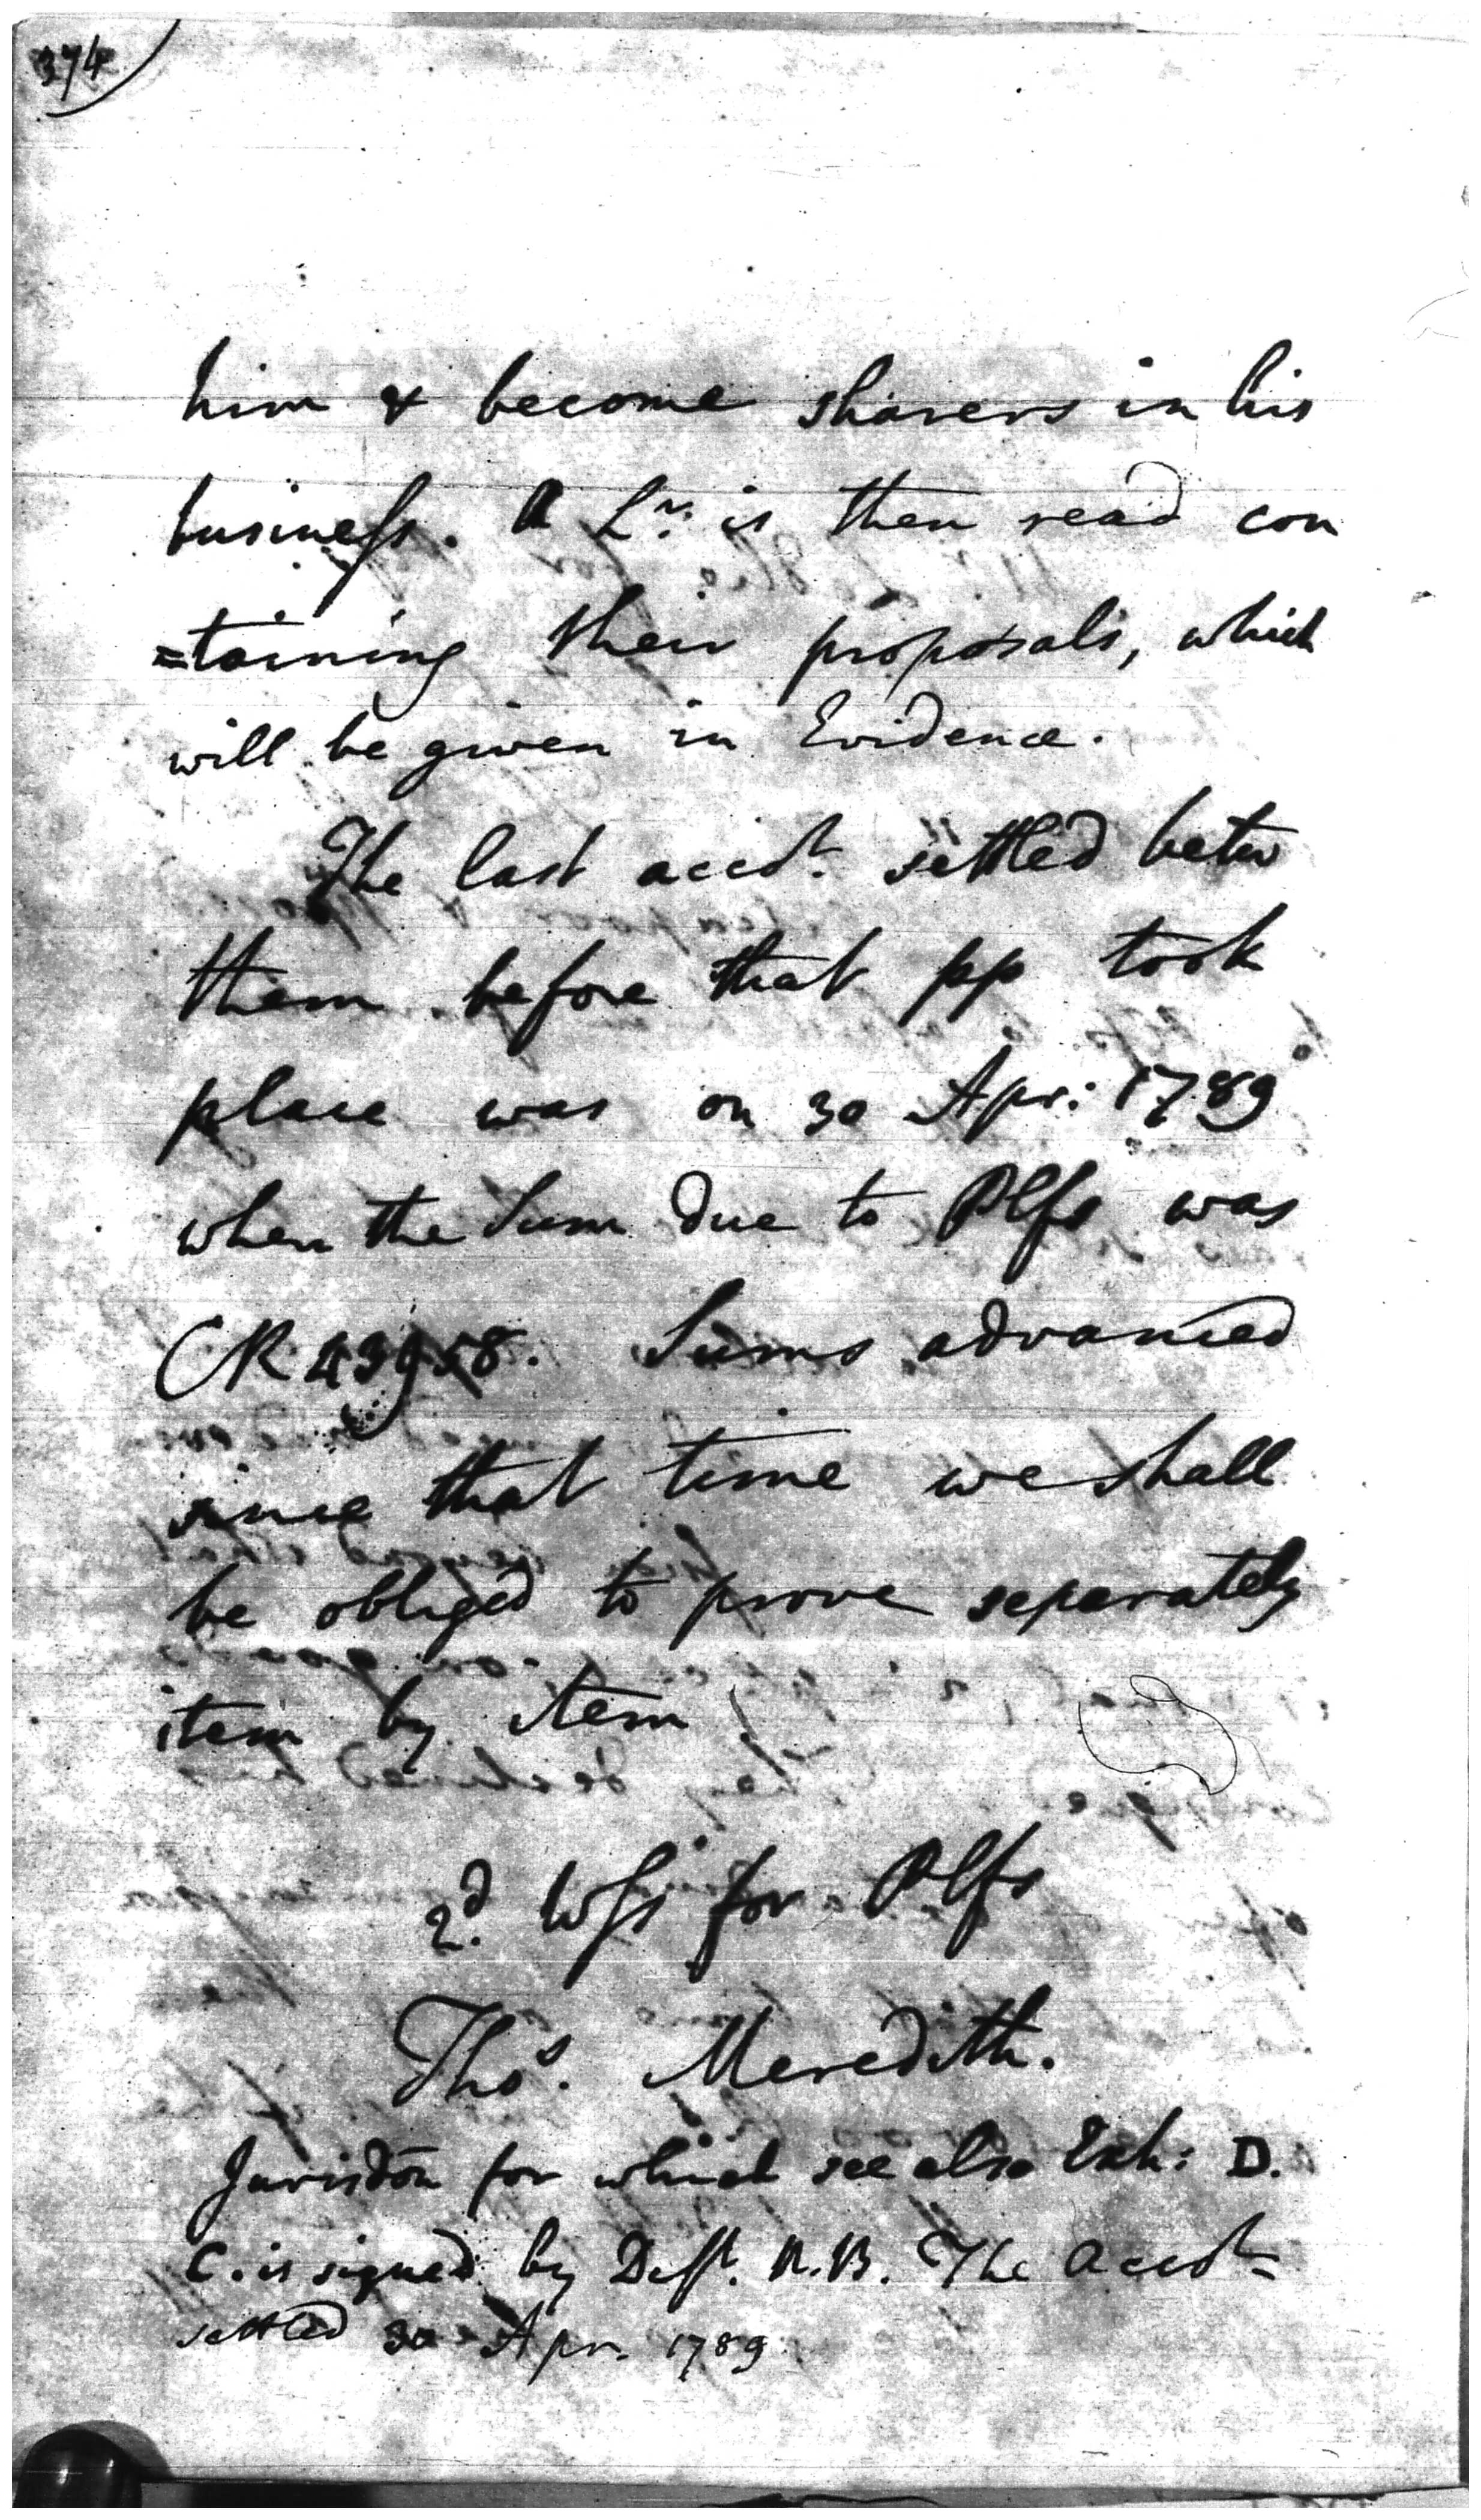 374
him & become sharers in his
business. A Lr. is then read con
=taining their proposals, which
will be given in Evidence.
The last accot. settled betw
them before that pp took
place was on 30 Apr: 1789
when the Sum due to Plfs was
CR 43958. Sums advanced
since that time we shall
be obliged to prove separately
item by item
2d. Wss for Plfs
Thos. Meredith.
Jurisdon for which see also Exh: D.
C. is signed by Deft. N.B. The accot
settled 30 Apr. 1789